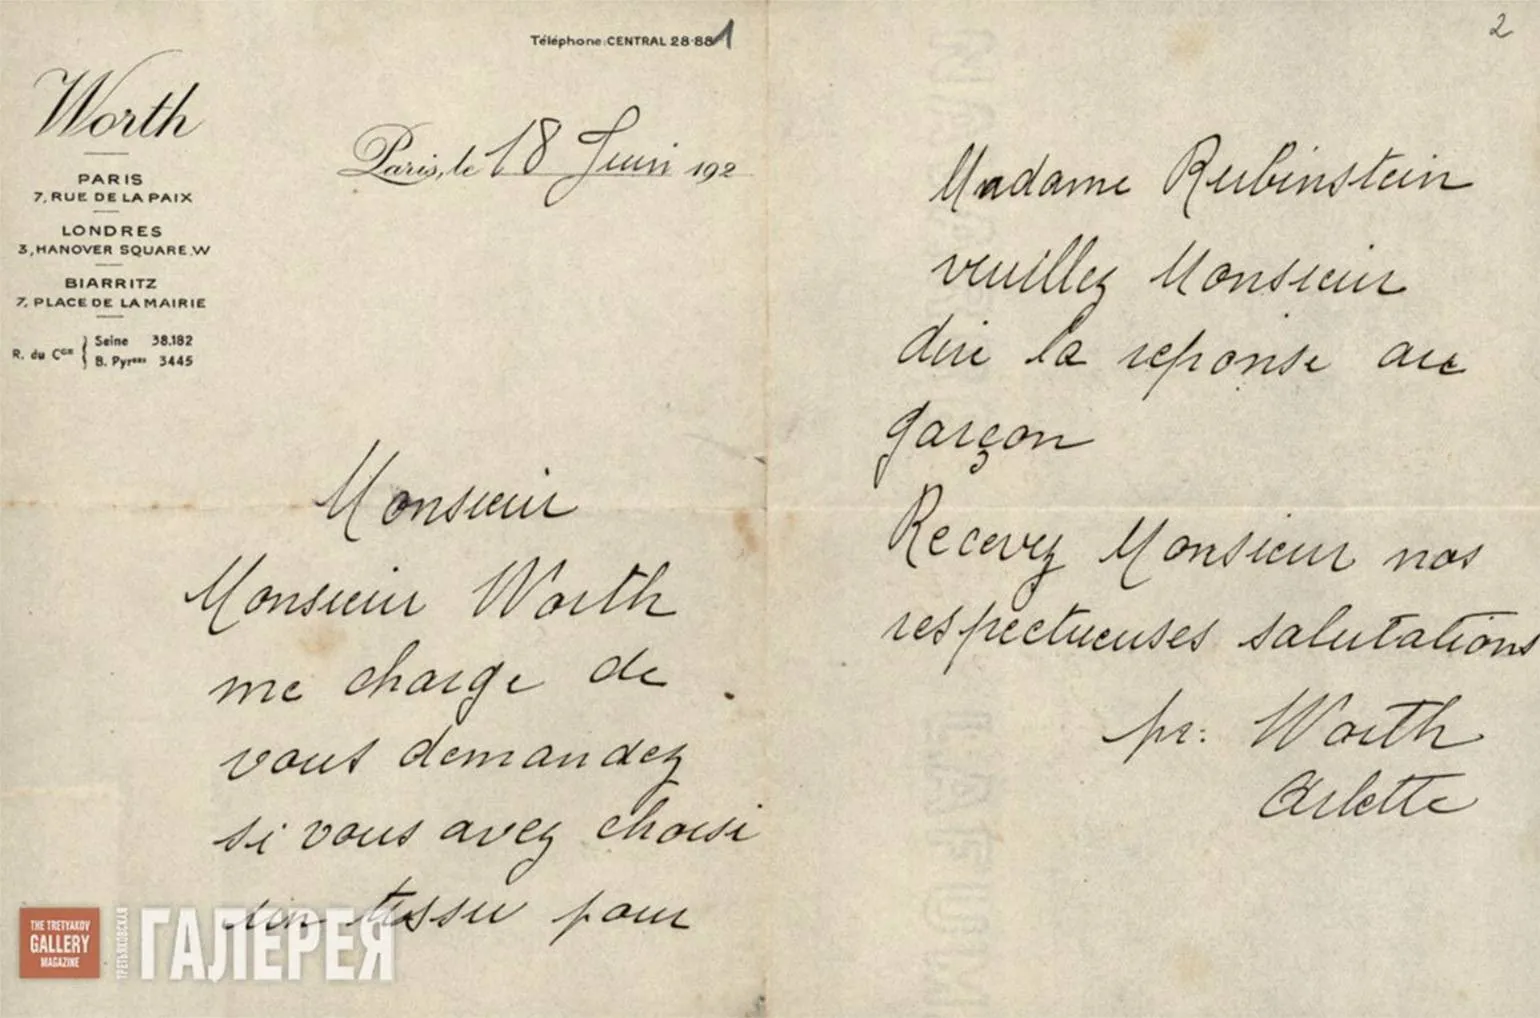 Téléphone: CENTRAL 28-88
1
Worth
PARIS
7, RUE DE LA PAIX
LONDRES
3, HANOVER SQUARE. W
BIARRITZ
7, PLACE DE LA MAIRIE
R. du Cce { Seine 38.182
B. Pyrees 3445
Paris, le 18 Juin 192
Monsieur
Monsieur Worth
me charge de
vous demandez
si vous avez choisi
un tissu pour
2
Madame Rubinstein
veuillez Monsieur
dire la reponse au
garçon
Recevez Monsieur nos
respectueuses salutations
pr: Worth
Arlette
THE TRETYAKOV
GALLERY
MAGAZINE
ТРЕТЬЯКОВСКАЯ
ГАЛЕРЕЯ